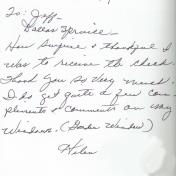 To: Jeff-
Dallas Service
How surprise & thankful I
was to receive the check.
Thank you so very much!
I do get quite a few com-
pliments & comments on my
Windows. (Garden Window)
Helen